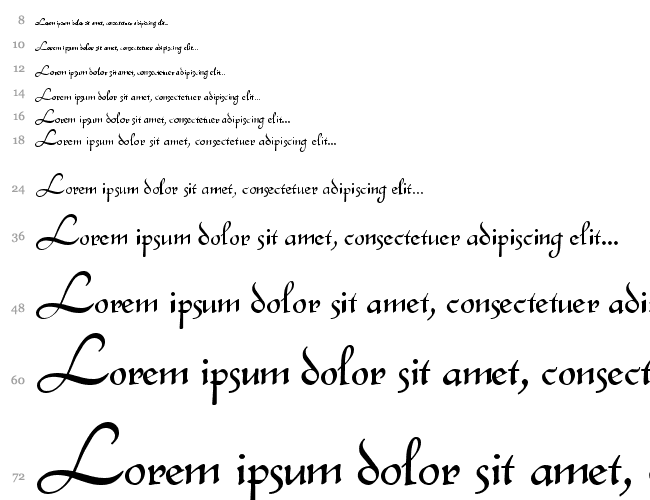 8 Lorem ipsum dolor sit amet, consectetuer adipiscing elit...
10 Lorem ipsum dolor sit amet, consectetuer adipiscing elit...
12 Lorem ipsum dolor sit amet, consectetuer adipiscing elit...
14 Lorem ipsum dolor sit amet, consectetuer adipiscing elit...
16 Lorem ipsum dolor sit amet, consectetuer adipiscing elit...
18 Lorem ipsum dolor sit amet, consectetuer adipiscing elit...
24 Lorem ipsum dolor sit amet, consectetuer adipiscing elit...
36 Lorem ipsum dolor sit amet, consectetuer adipiscing elit...
48 Lorem ipsum dolor sit amet, consectetuer adi
60 Lorem ipsum dolor sit amet, consect
72 Lorem ipsum dolor sit amet,